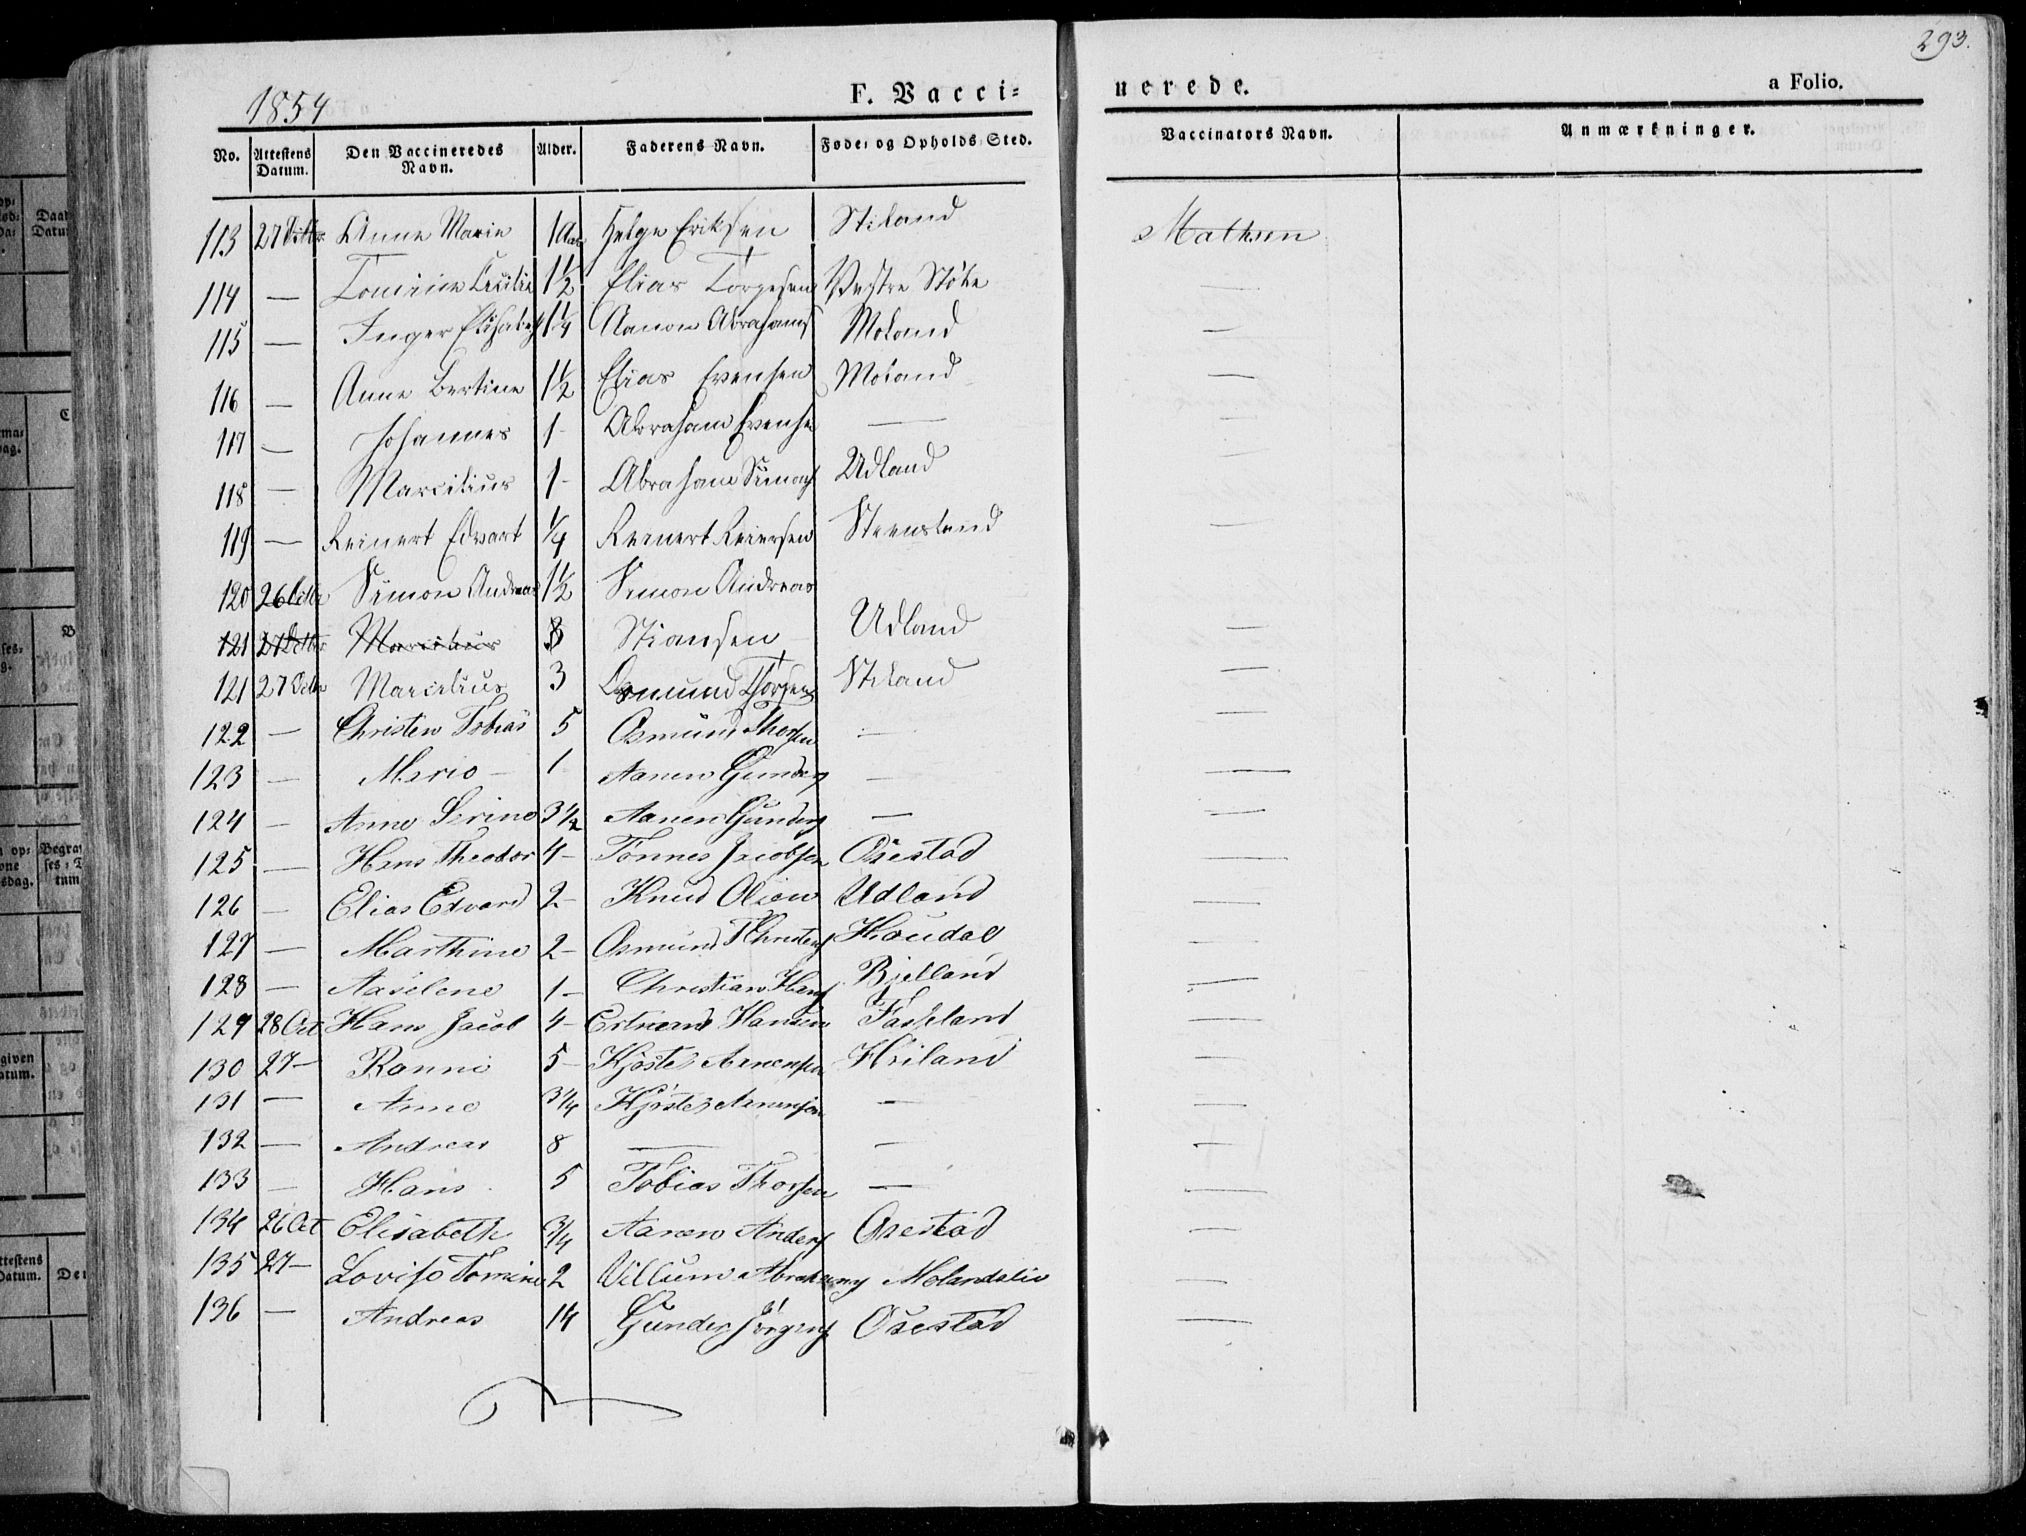 293.
1854
F. Vacci=
nerede.
a Folio.
No. Attestens Datum. Den Vaccineredes Navn. Alder. Faderens Navn. Føde= og Opholds=Sted. Vaccinators Navn. Anmærkninger.
113 27 Anne Marie 1 Helge Eriksen Stiland Mathsen
114 — Tomine Cecilie 1½ Elias Torgesen Vestre —
115 — Inger Elisabeth 1¼ Aanon Abrahams Moland —
116 — Anne Bertine 1½ Elias Evensen Moland —
117 — Johannes 1- Abraham Evense — —
118 — Marcilius 1- Abraham Simons Udland —
119 — Reinert Edvart ¼ Reinert Reiersen Steensland —
120 26 Simon Andreas 1½ Simon Andreas
121 27 Marcilius 3 Stiansen Udland —
121 27 Marcilius 3 Osmund Thorsen Stiland —
122 — Christen Tobias 5 Osmund Thorsen — —
123 — Marie — 1 Aanen Gunders — —
124 — Anne Serine 3½ Aanen Gunders — —
125 — Hans Theodor 4- Tönnes Jacobsen Osestad —
126 — Elias Edvard 2- Knud Olsen Udland —
127 — Marthine 2- Osmund Christens Houdal —
128 — Axelene 1- Christian Hans Bielland —
129 28 Oct Hans Jacob 4- Hansen Faskeland —
130 27- Ranni 5- Kjöstel Aanensen Heiland —
131 — Anne 3¼ Kjöstel Aanensen — —
132 — Andreas 8 — — —
133 — Hans 5 Tobias Thorsen — —
134 26 Oct Elisabeth ¾ Aanen Anders Osestad —
135 27- Lovise Tomine 2 Villum Abrahams Molandslie —
136 — Andreas 14 Gunder Jörgens Osestad —